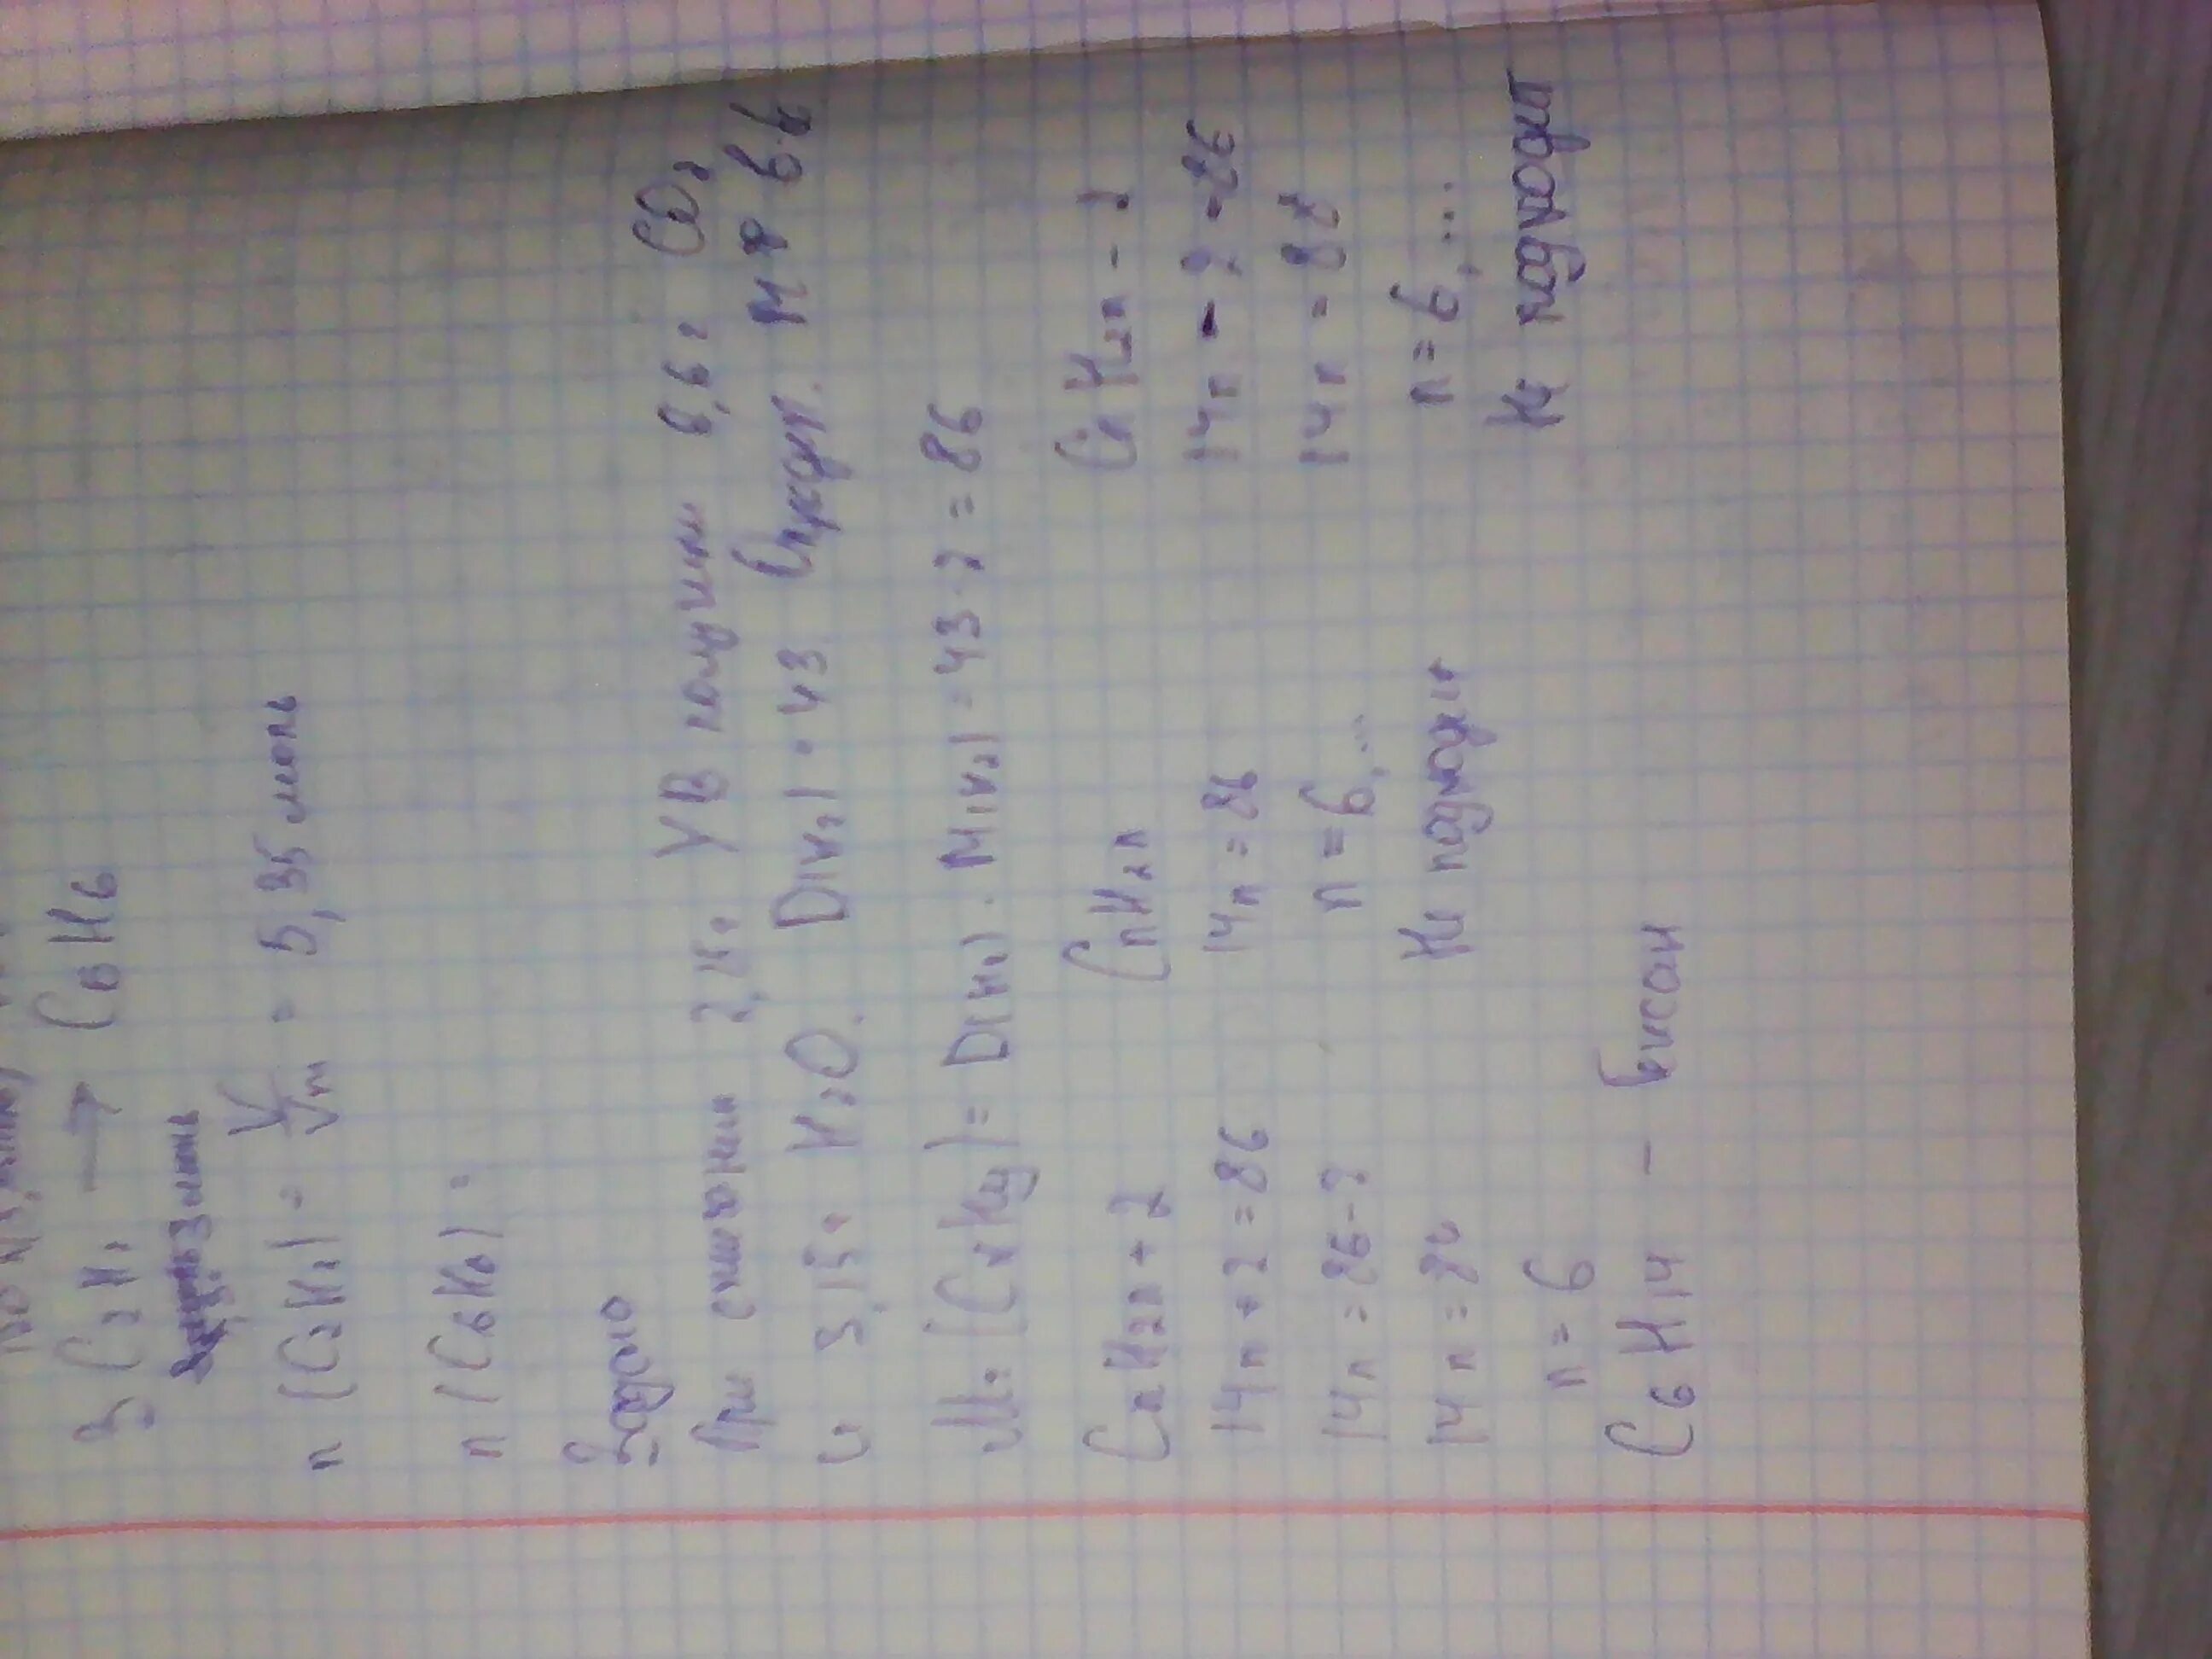 3 C2H2 → C6H6
3 моль
n (C2H2) = V/Vm = 5,35 моль
n (C6H6) =
Задано
При сжигании 2, УВ получили 6,6г CO2
и 3,15г H2O. D(H2) = 43. Определ. М Ф в-ва
Mr (CxHy) = D(H2) · M(H2) = 43·2 = 86
CnH2n+2 CnH2n CnH2n-2
14n+2=86 14n=86 14n - 2 = 86
14n=86-2 n=6,... 14n = 88
14n=84 Не подходит n=6,...
n=6 Не подходит
C6H14 – Гексан